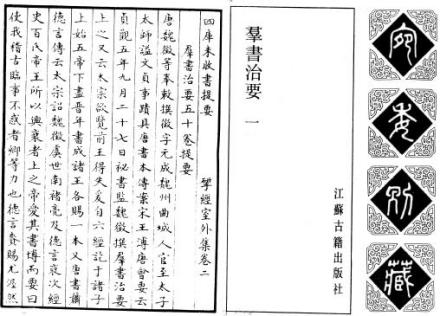 宛
委
別
藏
羣書治要 一
江蘇古籍出版社
四庫未收書提要
羣書治要五十卷提要 揅經室外集卷二
唐魏徵等奉敕撰徵字元成魏州曲城人官至太子
太師謚文貞事蹟具唐書本傳案宋王溥唐會要云
貞觀五年九月二十七日祕書監魏徵撰羣書治要
上之又云太宗欲覽前王得失爰自六經訖于諸子
上始五帝下盡晉年書成諸王各賜一本又唐書蕭
德言傳云太宗詔魏徵虞世南褚亮及德言裒次經
史百氏帝王所以興衰者上之帝愛其書博而要曰
使我稽古臨事不惑者卿等力也德言賚賜尤渥然